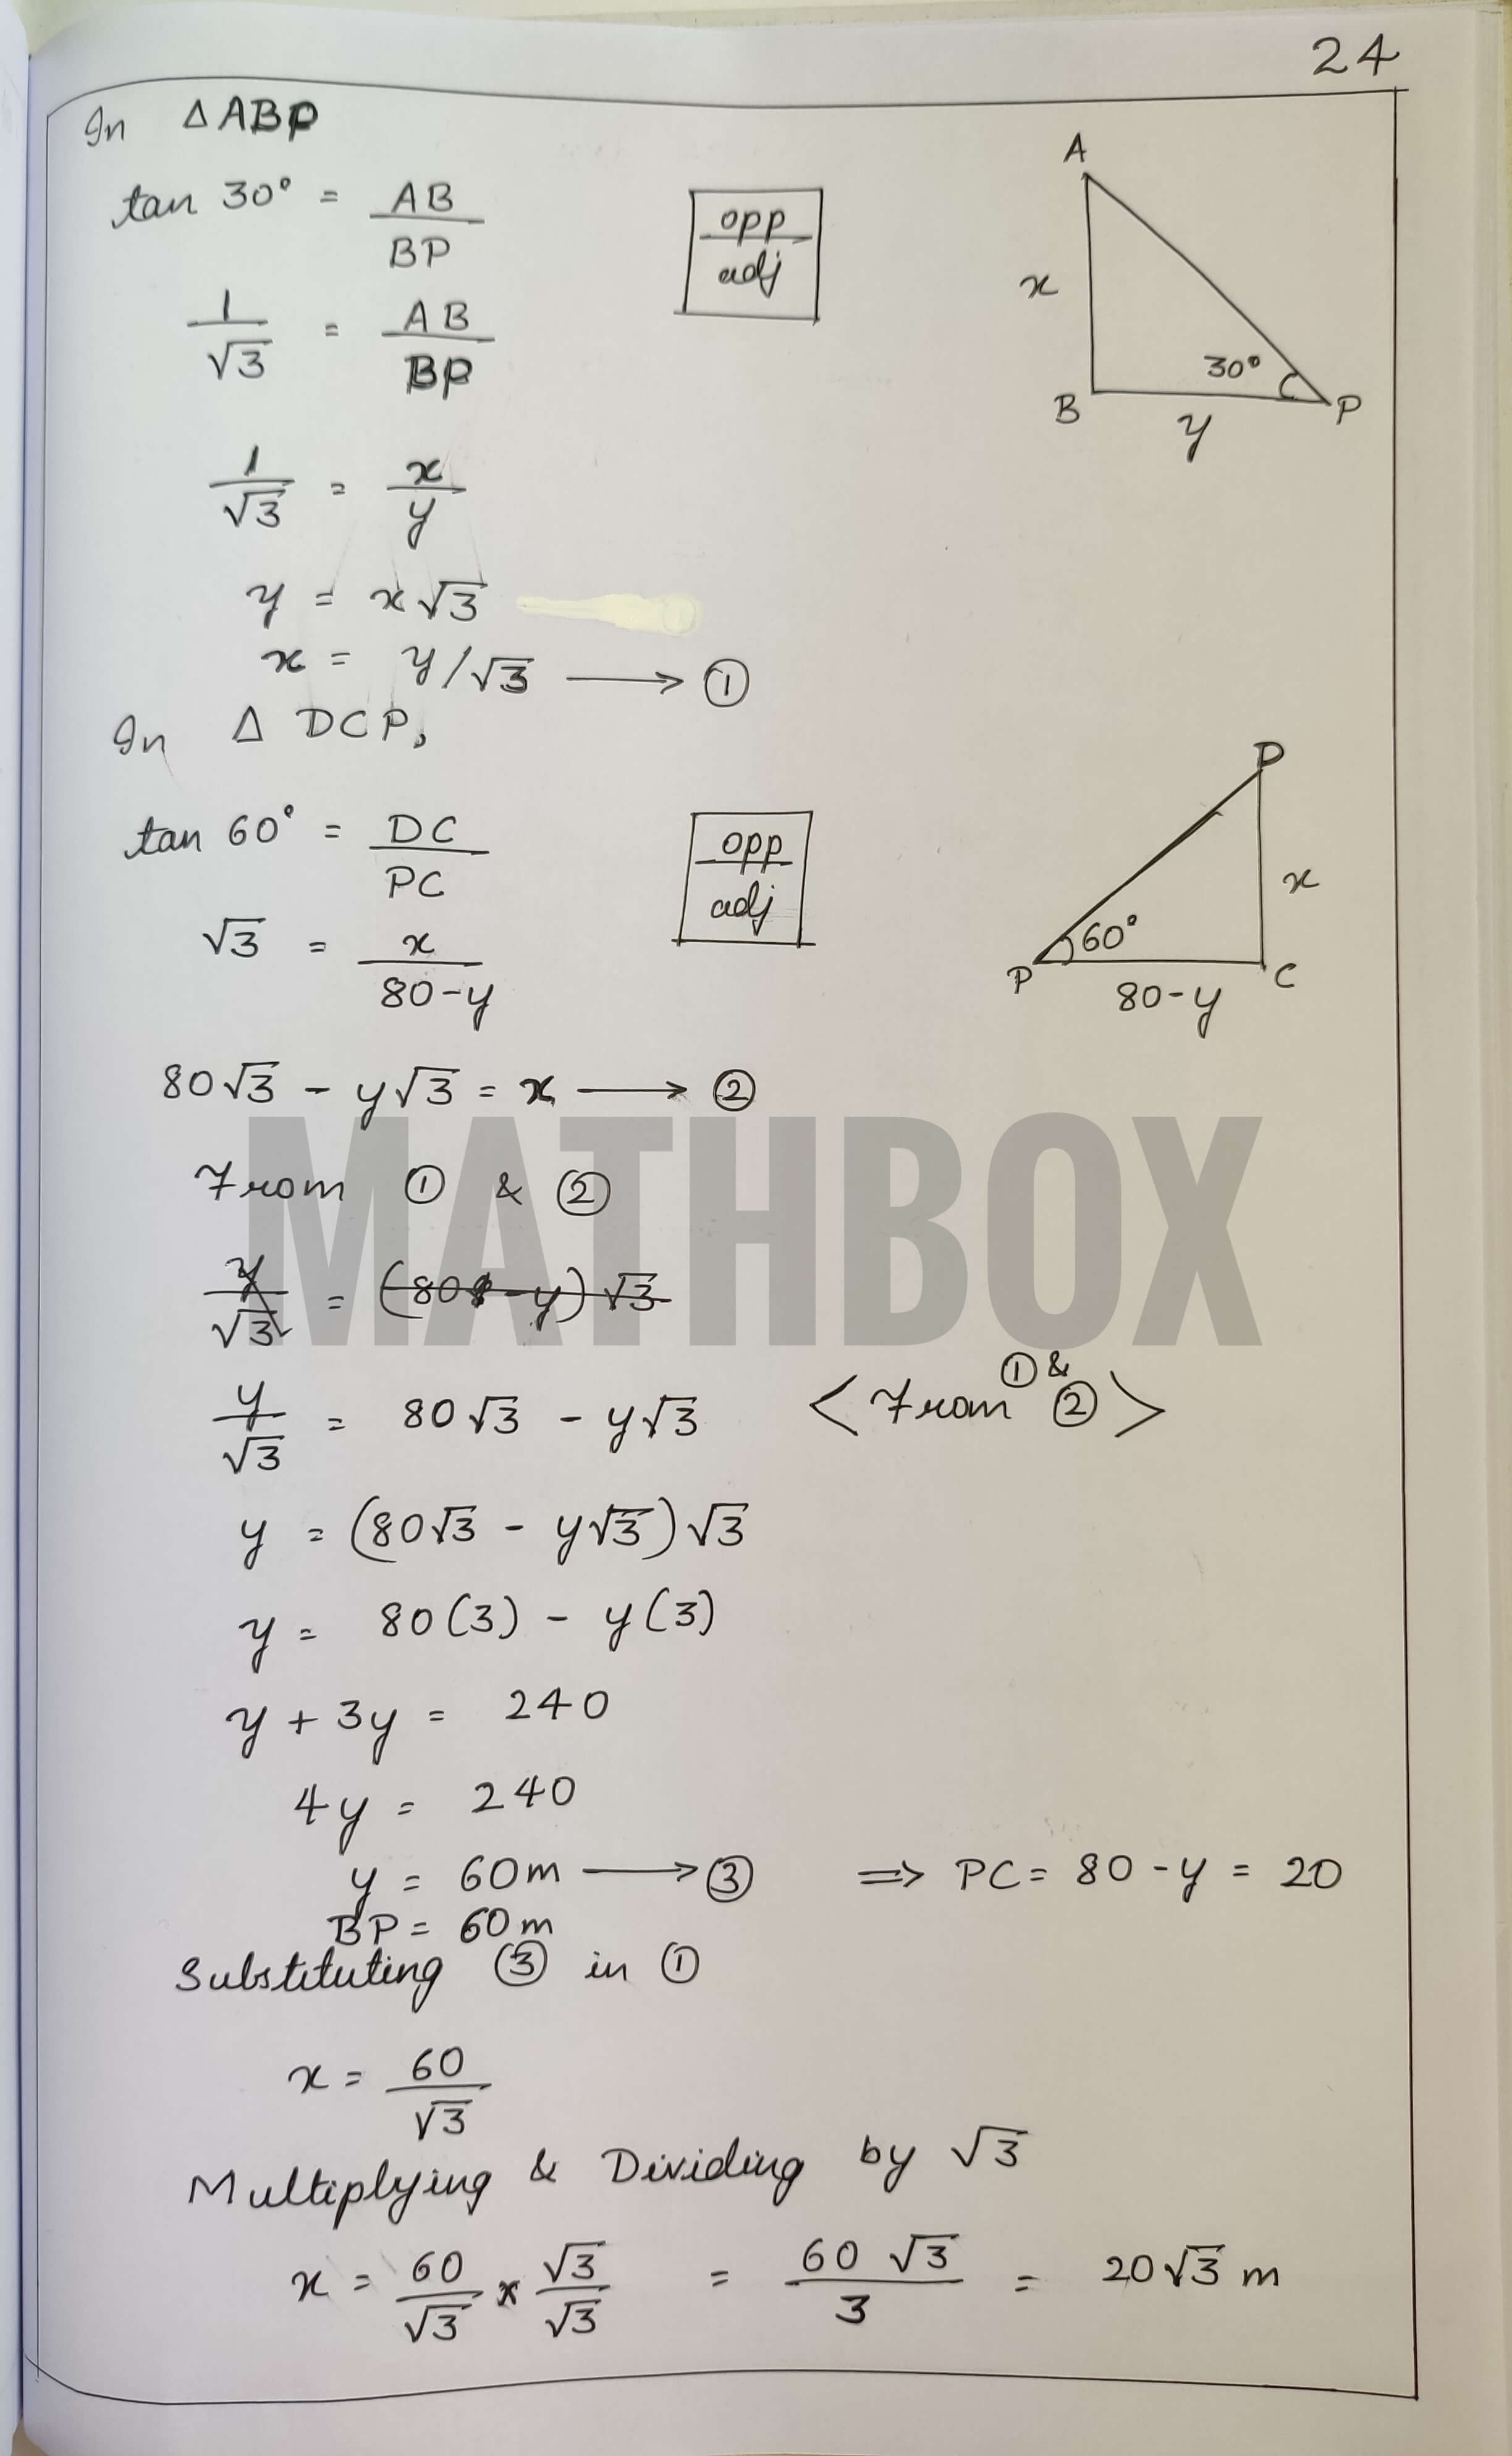 24
In Δ ABP
tan 30° = AB/BP
opp/adj
A
x
30°
B
P
y
1/√3 = AB/BP
1/√3 = x/y
y = x√3
x = y/√3 ⟶ ①
In Δ DCP,
tan 60° = DC/PC
opp/adj
D
x
60°
P
C
80-y
√3 = x/80-y
80√3 - y√3 = x ⟶ ②
MATHBOX
From ① & ②
y/√3 = (80 - y)√3
y/√3 = 80√3 - y√3 <From ① & ②>
y = (80√3 - y√3)√3
y = 80(3) - y(3)
y + 3y = 240
4y = 240
y = 60m ⟶ ③ ⇒ PC = 80 - y = 20
BP = 60m
Substituting ③ in ①
x = 60/√3
Multiplying & Dividing by √3
x = 60/√3 × √3/√3 = 60 √3/3 = 20√3 m